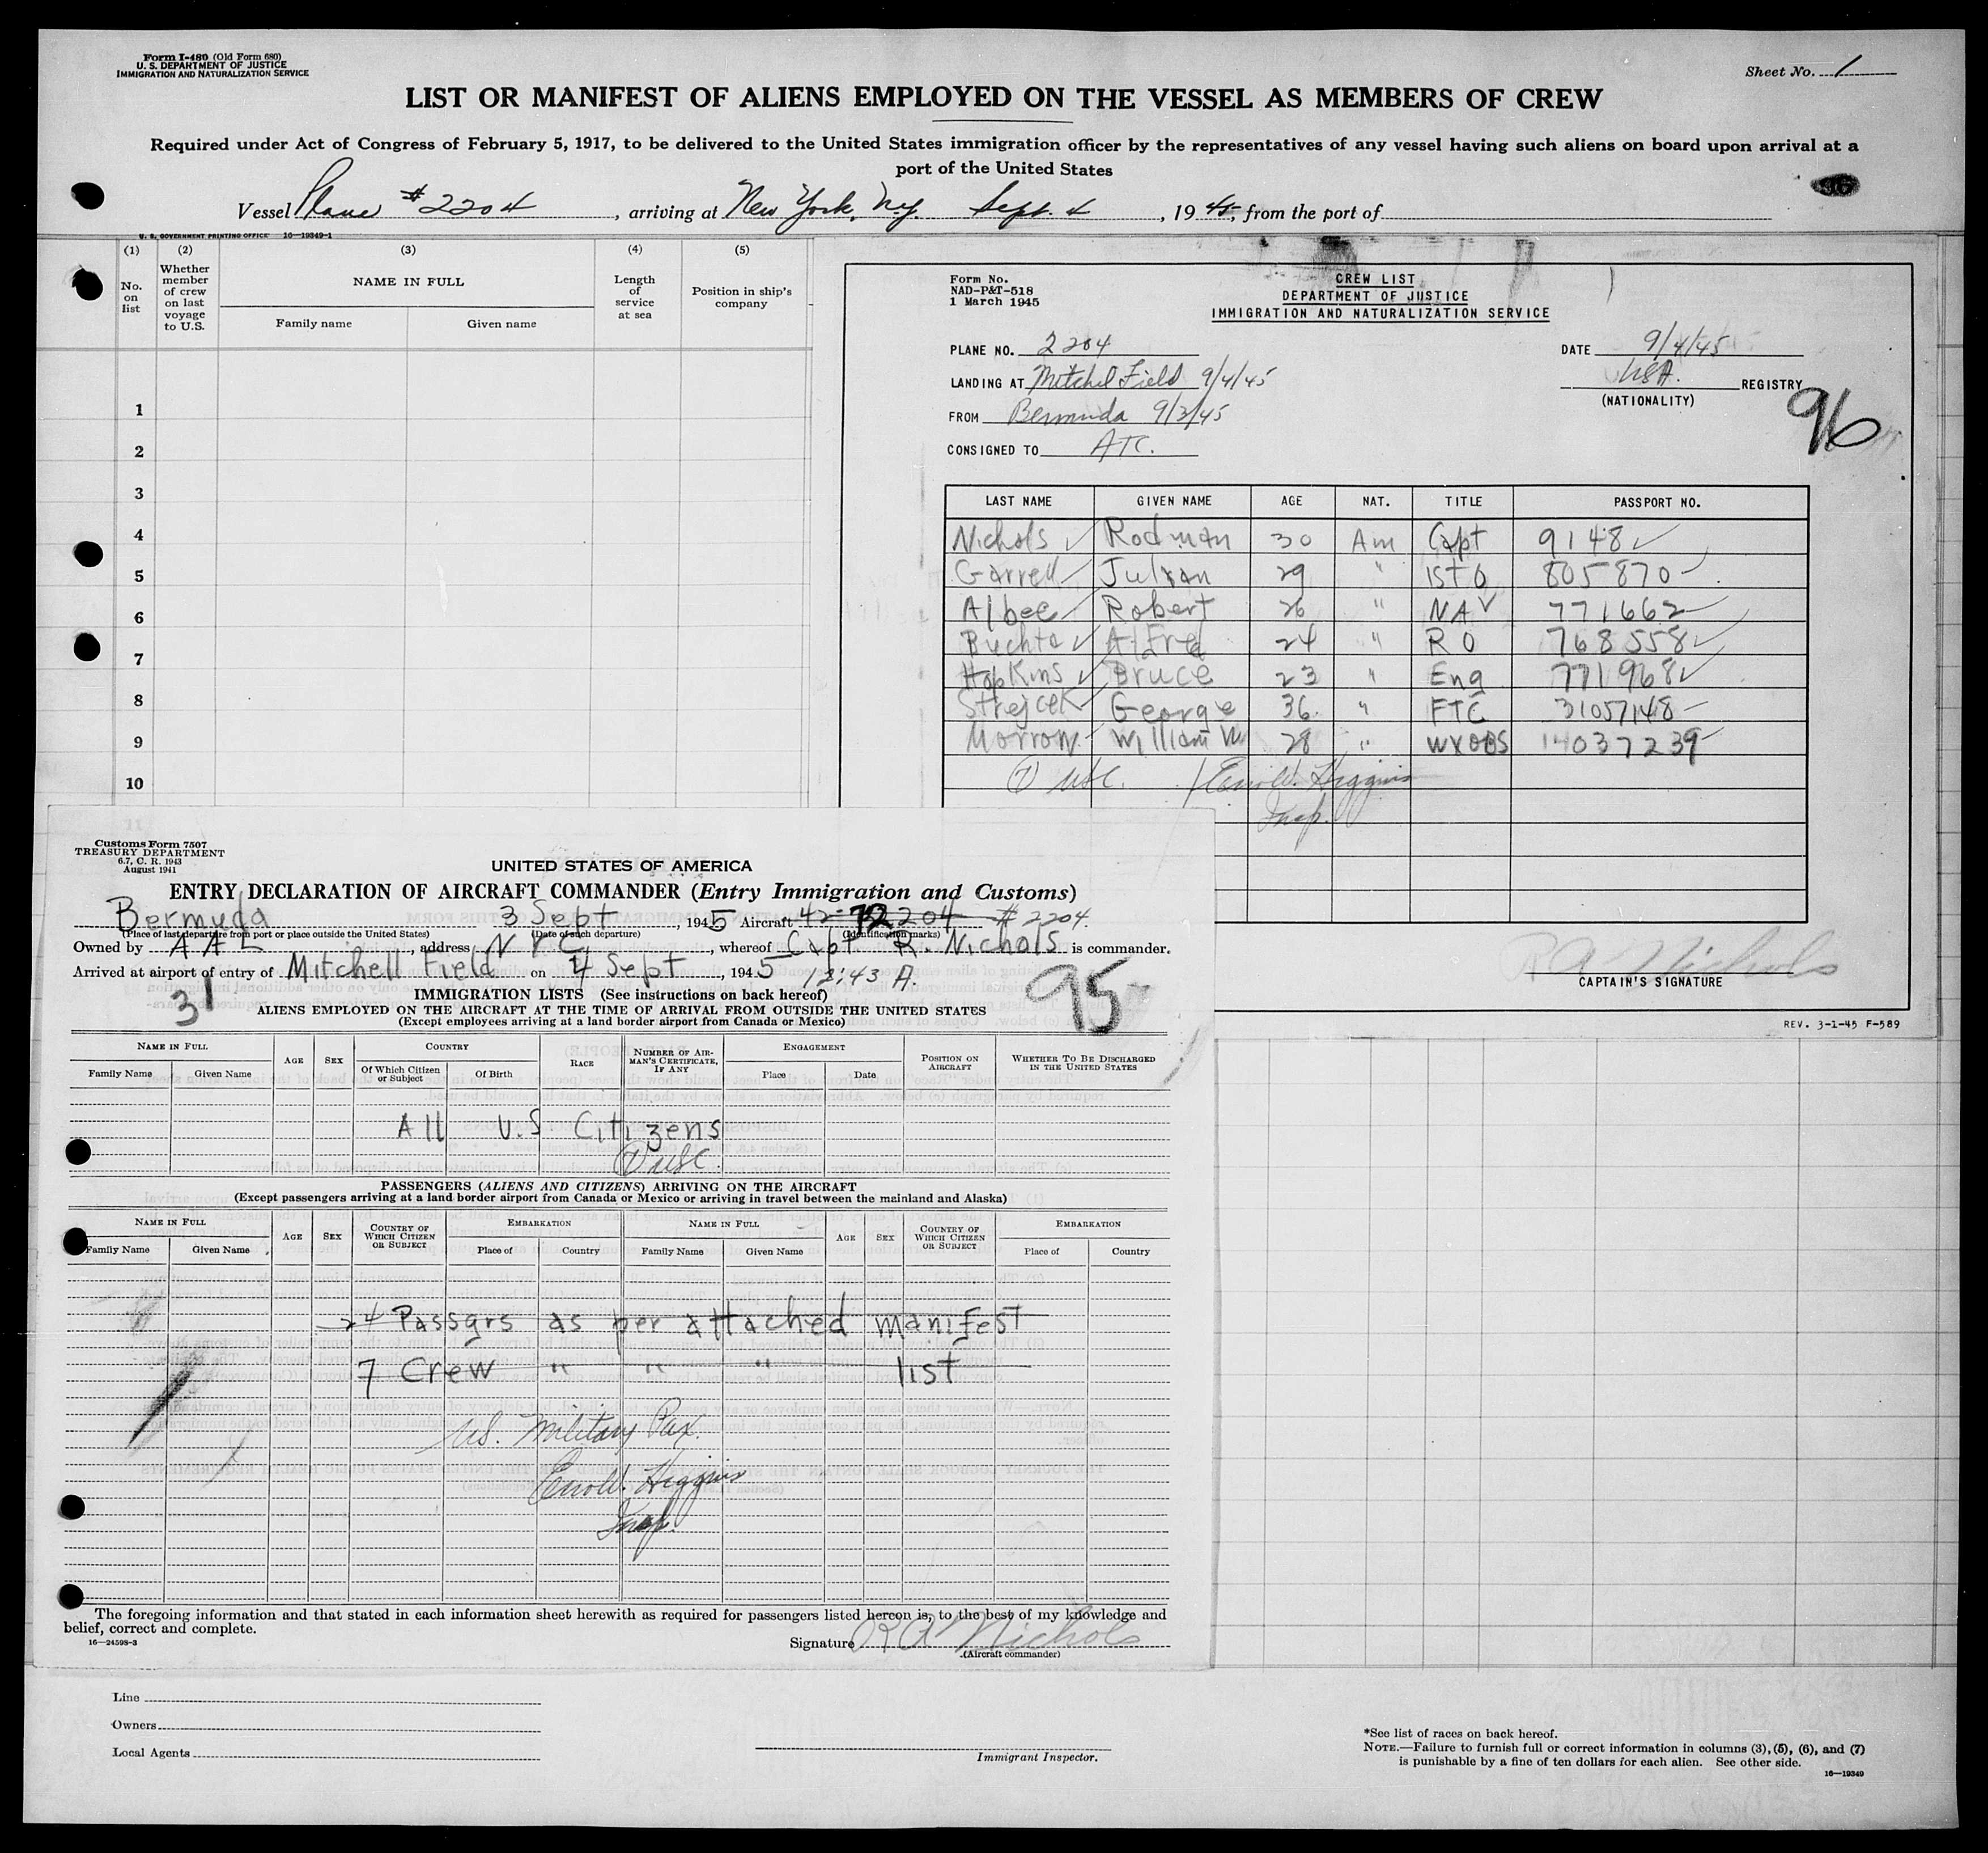 Form I-480 (Old Form 680)
U. S. DEPARTMENT OF JUSTICE
IMMIGRATION AND NATURALIZATION SERVICE
Sheet No. 1
LIST OR MANIFEST OF ALIENS EMPLOYED ON THE VESSEL AS MEMBERS OF CREW
Required under Act of Congress of February 5, 1917, to be delivered to the United States immigration officer by the representatives of any vessel having such aliens on board upon arrival at a
port of the United States
Vessel Plane #2204, arriving at New York, N.Y. Sept. 4, 1945, from the port of
U. S. GOVERNMENT PRINTING OFFICE 16—19349-1
(1) (2) (3) (4) (5)
No. on list
Whether member of crew on last voyage to U.S.
NAME IN FULL
Family name Given name
Length of service at sea
Position in ship's company
1
2
3
4
5
6
7
8
9
10
11
Form No.
NAD-P&T-518
1 March 1945
CREW LIST
DEPARTMENT OF JUSTICE
IMMIGRATION AND NATURALIZATION SERVICE
PLANE NO. 2204 DATE 9/4/45
LANDING AT Mitchel Field 9/4/45 USA. REGISTRY
(NATIONALITY)
FROM Bermuda 9/3/45
96
CONSIGNED TO ATC.
LAST NAME GIVEN NAME AGE NAT. TITLE PASSPORT NO.
Nichols Rodman 30 Am Capt 9148
Garrell Julian 29 " 1ST O 805870
Albee Robert 26 " NAV 771662
Buchta Alfred 24 " RO 768558
Hopkins Bruce 23 " Eng 771968
Strejcek George 36 " FTC 31057148
Morrow William W 28 " WXOBS 14037239
(7) USC. Higgins
Insp.
R A Nichols
CAPTAIN'S SIGNATURE
REV. 3-1-45 F-589
Customs Form 7507
TREASURY DEPARTMENT
6.7, C. R. 1943
August 1941
UNITED STATES OF AMERICA
ENTRY DECLARATION OF AIRCRAFT COMMANDER (Entry Immigration and Customs)
Bermuda 3 Sept, 1945 Aircraft 42-72204 #2204.
(Place of last departure from port or place outside the United States) (Date of such departure) (Identification marks)
Owned by AAL, address NYC, whereof Capt R. Nichols is commander.
Arrived at airport of entry of Mitchell Field on 4 Sept, 1945 12:43 A.
31
95
IMMIGRATION LISTS (See instructions on back hereof)
ALIENS EMPLOYED ON THE AIRCRAFT AT THE TIME OF ARRIVAL FROM OUTSIDE THE UNITED STATES
(Except employees arriving at a land border airport from Canada or Mexico)
NAME IN FULL AGE SEX COUNTRY RACE NUMBER OF AIRMAN'S CERTIFICATE, IF ANY ENGAGEMENT POSITION ON AIRCRAFT WHETHER TO BE DISCHARGED IN THE UNITED STATES
Family Name Given Name Of Which Citizen or Subject Of Birth Place Date
All U.S Citizens
(7) USC.
PASSENGERS (ALIENS AND CITIZENS) ARRIVING ON THE AIRCRAFT
(Except passengers arriving at a land border airport from Canada or Mexico or arriving in travel between the mainland and Alaska)
NAME IN FULL AGE SEX COUNTRY OF WHICH CITIZEN OR SUBJECT EMBARKATION NAME IN FULL AGE SEX COUNTRY OF WHICH CITIZEN OR SUBJECT EMBARKATION
Family Name Given Name Place of Country Family Name Given Name Place of Country
24 Passgrs as per attached manifest
7 Crew " " " list
US. Military Pax.
Higgins
Insp.
The foregoing information and that stated in each information sheet herewith as required for passengers listed hereon is, to the best of my knowledge and
belief, correct and complete.
16—24598-3
Signature R A Nichols
(Aircraft commander)
Line
Owners
Local Agents
Immigrant Inspector.
*See list of races on back hereof.
NOTE.—Failure to furnish full or correct information in columns (3), (5), (6), and (7)
is punishable by a fine of ten dollars for each alien. See other side.
16—19349